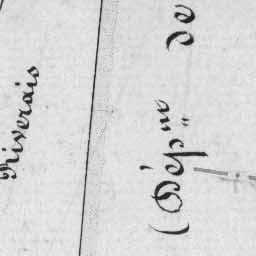 Riverais
(Dép.ᵐ de